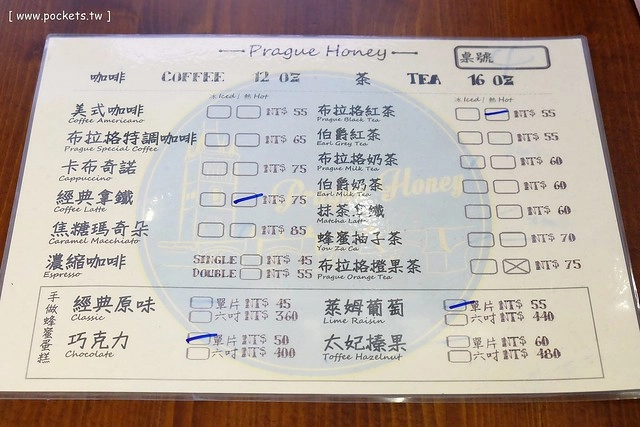 [ www.pockets.tw ]
Prague Honey
桌號
咖啡 COFFEE 12 OZ
冰 Iced | 熱 Hot
美式咖啡 NT$ 55
Coffee Americano
布拉格特調咖啡 NT$ 65
Prague Special Coffee
卡布奇諾 NT$ 75
Cappuccino
經典拿鐵 NT$ 75
Coffee Latte
焦糖瑪奇朵 NT$ 85
Caramel Macchiato
濃縮咖啡 SINGLE NT$ 45
Espresso DOUBLE NT$ 55
茶 TEA 16 OZ
冰 Iced | 熱 Hot
布拉格紅茶 NT$ 55
Prague Black Tea
伯爵紅茶 NT$ 55
Earl Grey Tea
布拉格奶茶 NT$ 60
Prague Milk Tea
伯爵奶茶 NT$ 60
Earl Milk Tea
抹茶拿鐵 NT$ 60
Matcha Latte
蜂蜜柚子茶 NT$ 70
You Za Ca
布拉格橙果茶 NT$ 75
Prague Orange Tea
手做蜂蜜蛋糕
經典原味 單片 NT$ 45
Classic 六吋 NT$ 360
巧克力 單片 NT$ 50
Chocolate 六吋 NT$ 400
萊姆葡萄 單片 NT$ 55
Lime Raisin 六吋 NT$ 440
太妃榛果 單片 NT$ 60
Toffee Hazelnut 六吋 NT$ 480